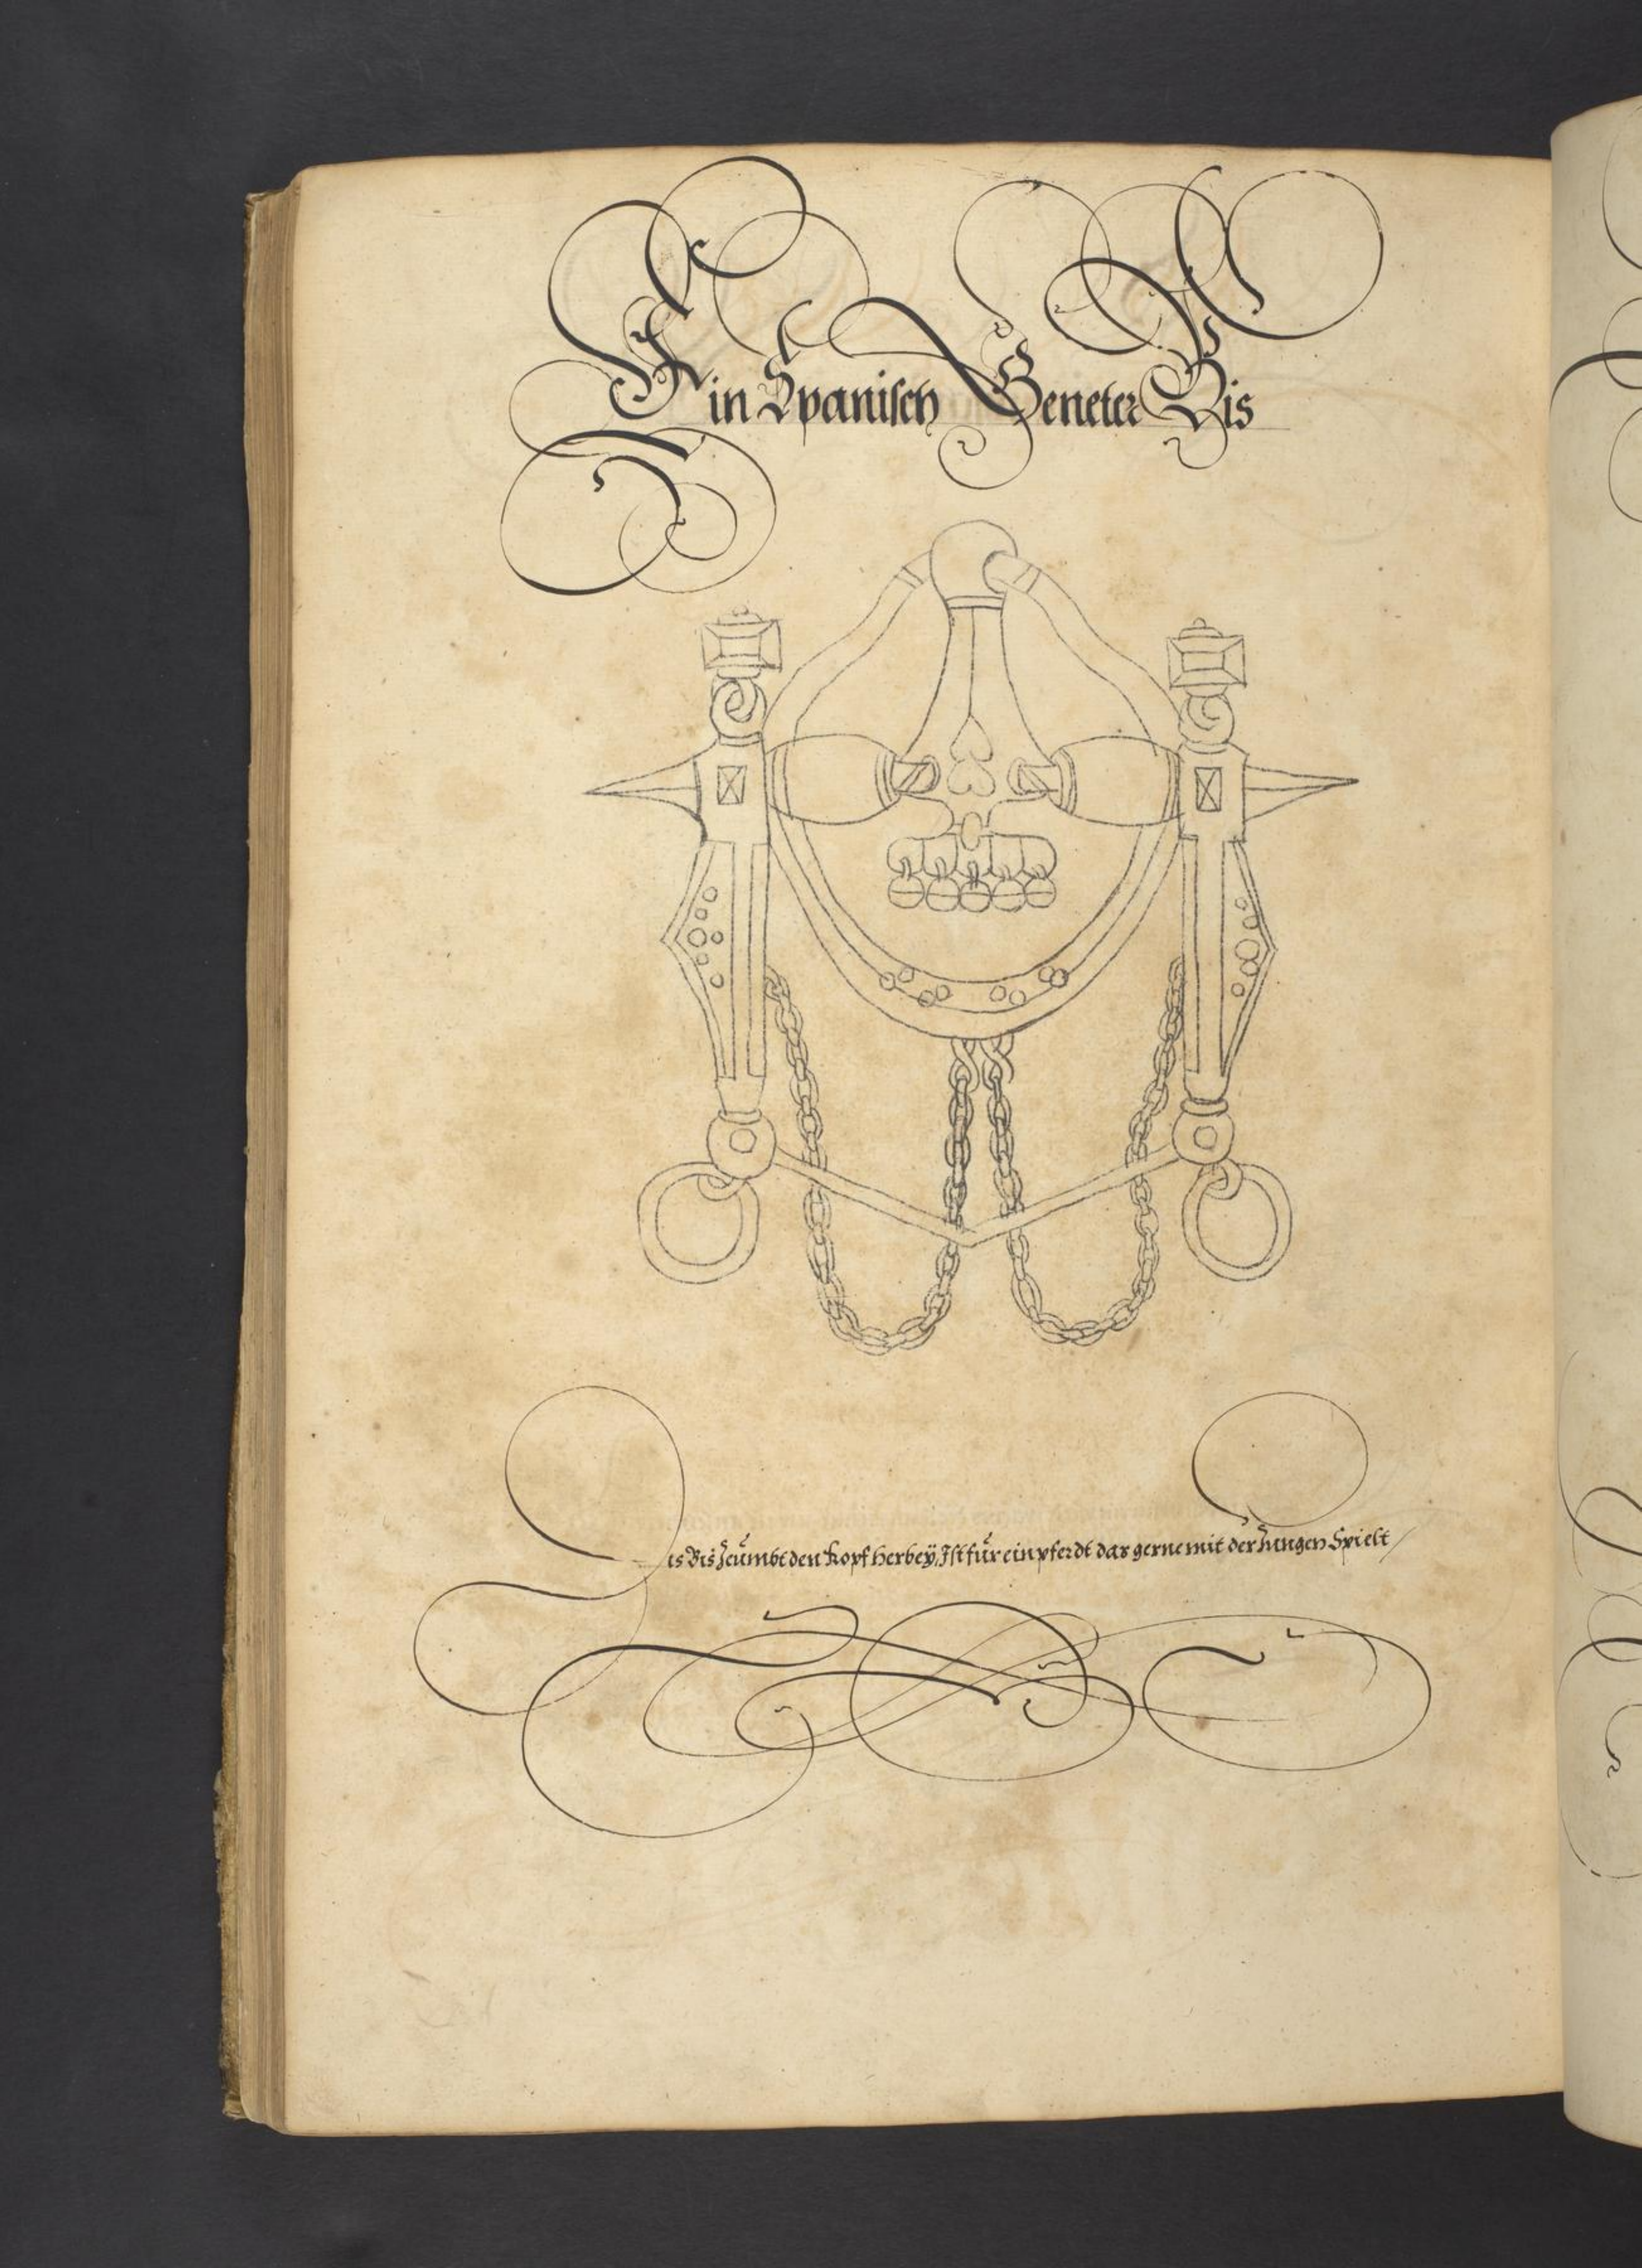 Ein Spanisch Geneter Bis
Dis Bis Zeümbt den Kopf Herbeÿ, Ist für ein pferdt das gerne mit der Zungen Spielt /